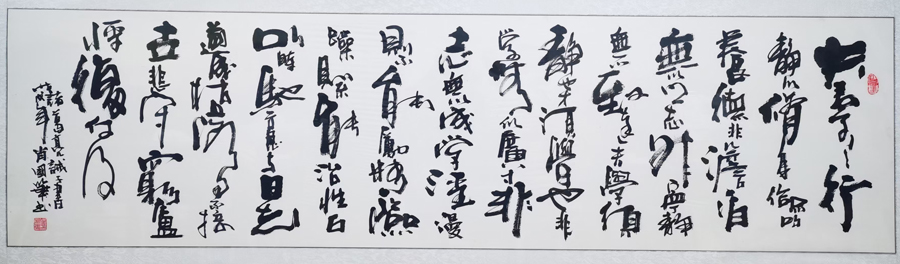 夫君子之行
靜以脩身儉以
養德非澹泊
無以明志非寧靜
無以致遠夫學須
靜也才須學也非
學無以廣才非
志無以成學淫漫
則不能勵精險
躁則不能治性年
與時馳意與日去
遂成枯落多不接
世悲守窮廬
將復何及
諸葛亮誡子書
年肖國華書